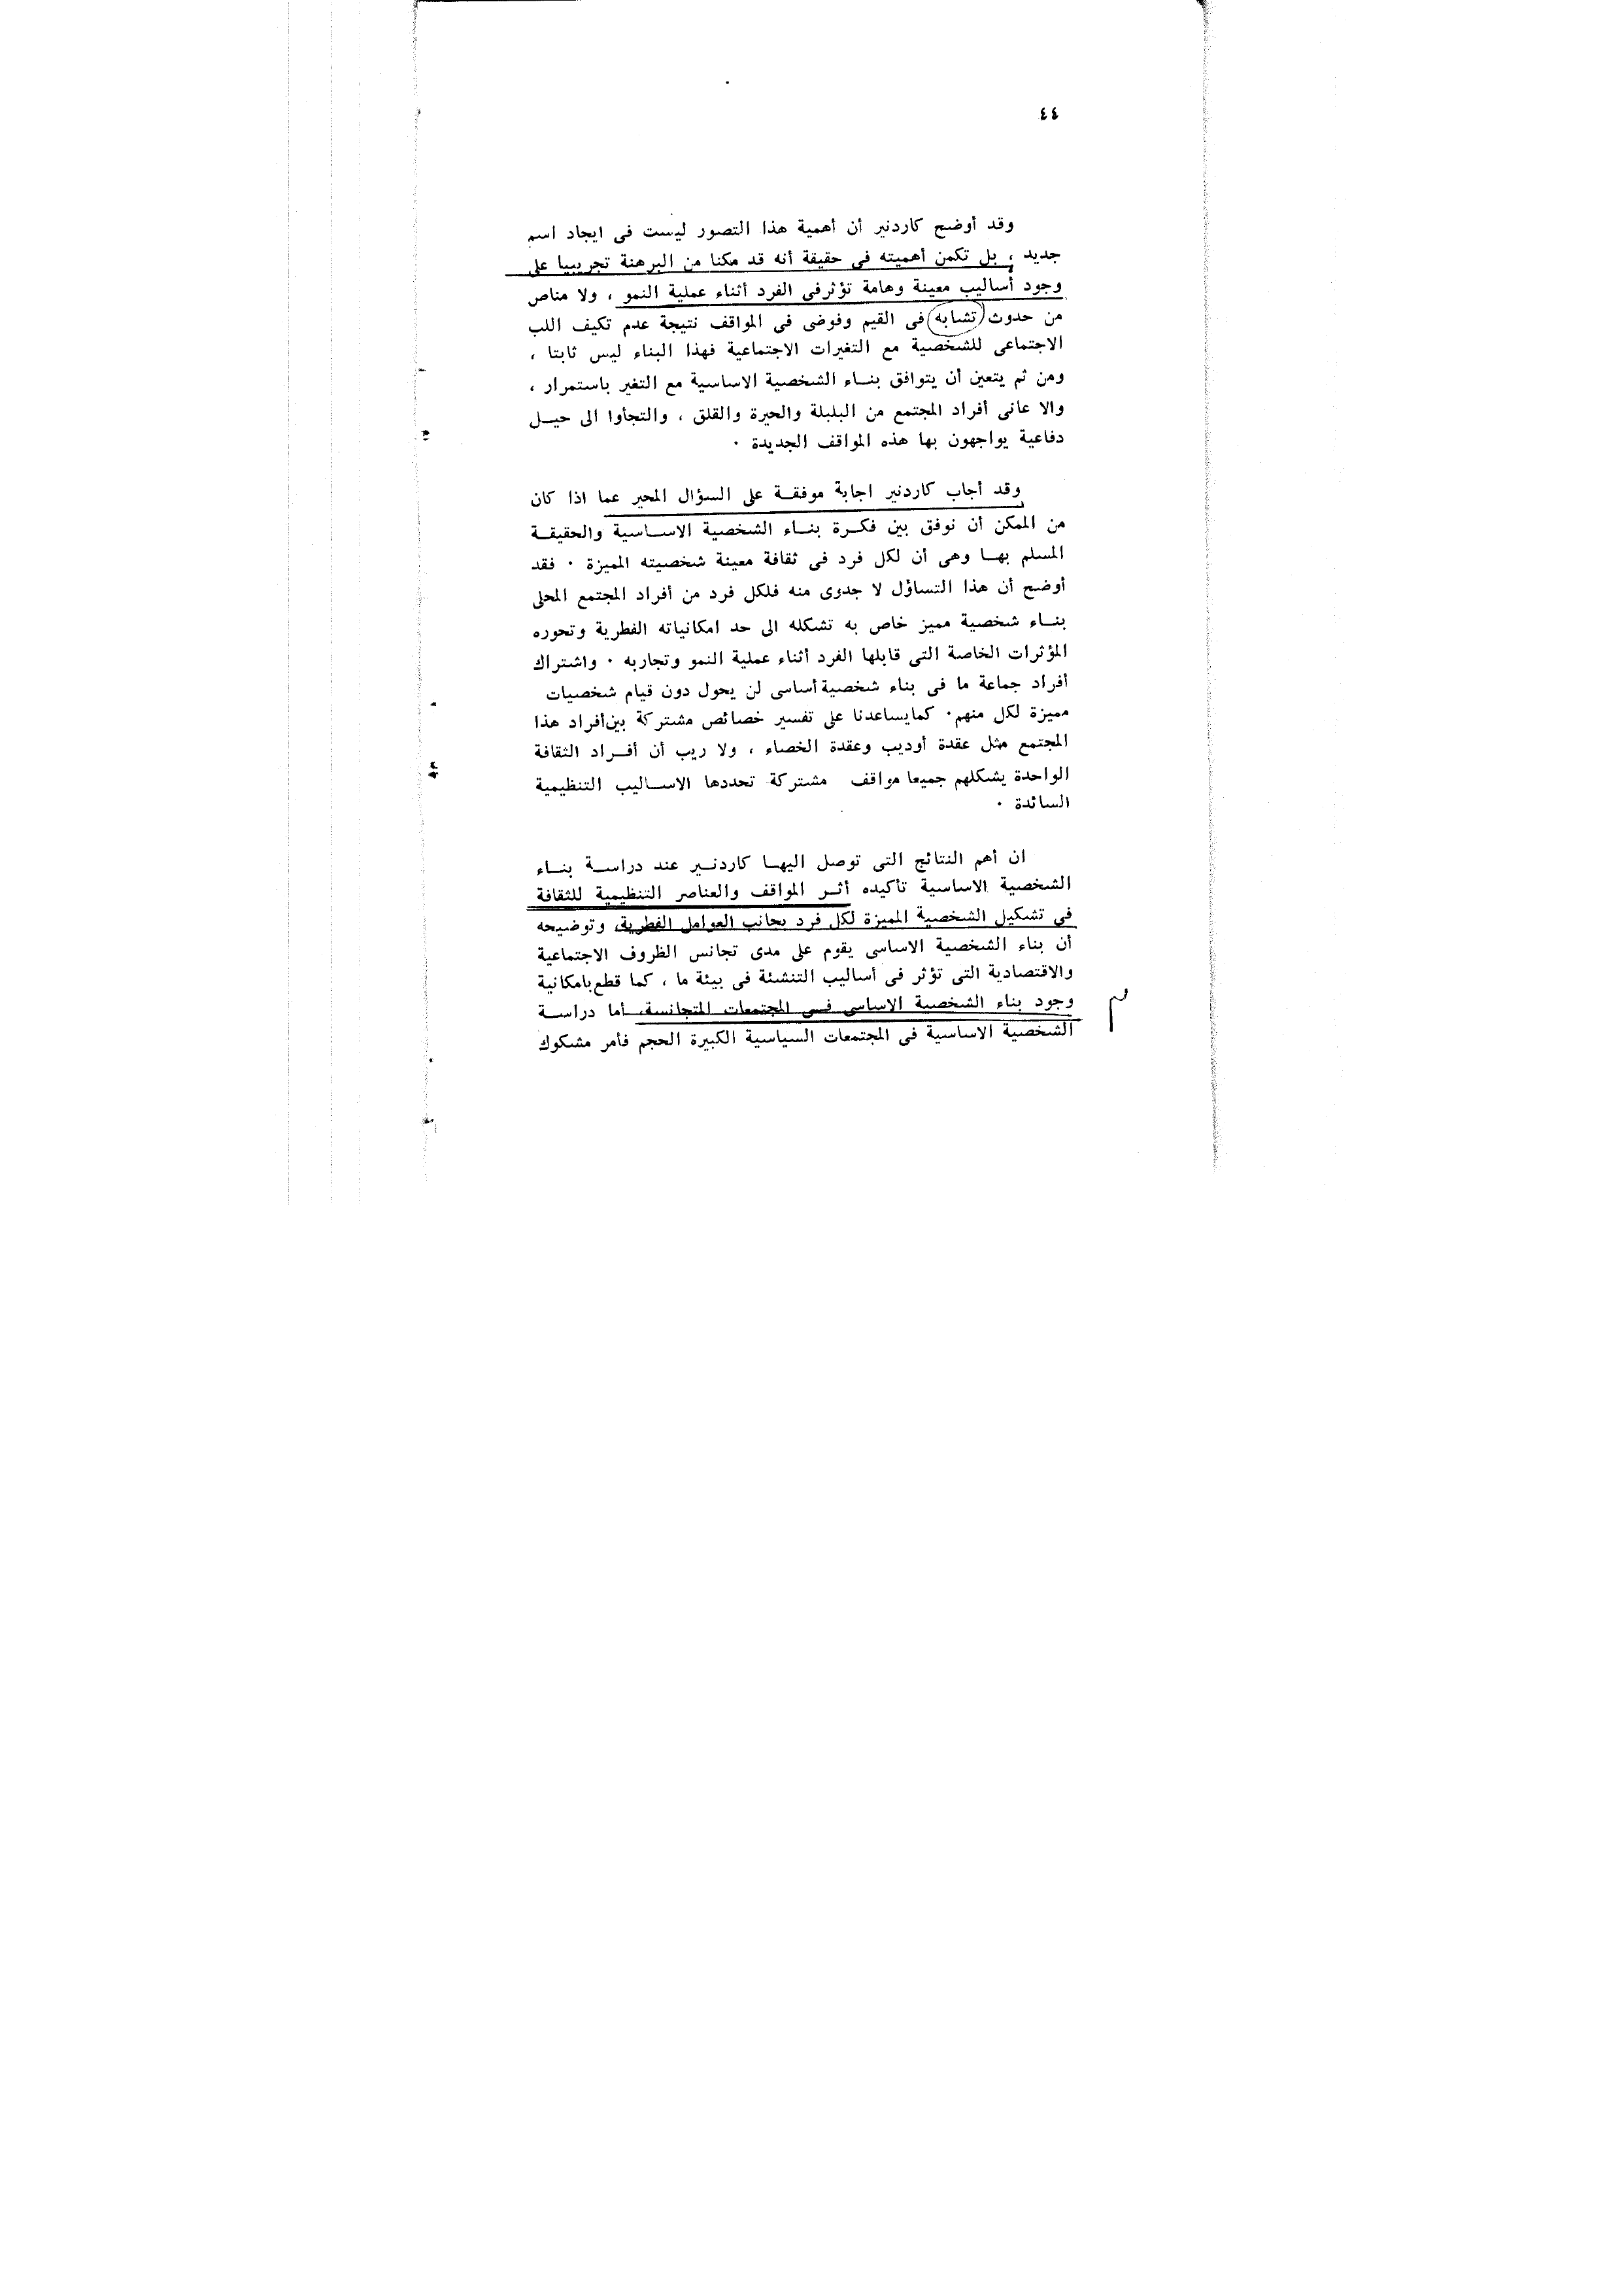 ٤٤
وقد أوضح كاردنير أن أهمية هذا التصور ليست فى ايجاد اسم
جديد ، بل تكمن أهميته فى حقيقة أنه قد مكنا من البرهنة تجريبيا على
وجود أساليب معينة وهامة تؤثرفى الفرد أثناء عملية النمو ، ولا مناص
من حدوث (تشابه) فى القيم وفوضى فى المواقف نتيجة عدم تكيف اللب
الاجتماعى للشخصية مع التغيرات الاجتماعية فهذا البناء ليس ثابتا ،
ومن ثم يتعين أن يتوافق بنـاء الشخصية الاساسية مع التغير باستمرار ،
والا عانى أفراد المجتمع من البلبلة والحيرة والقلق ، والتجأوا الى حيــل
دفاعية يواجهون بها هذه المواقف الجديدة ٠
وقد أجاب كاردنير اجابة موفقــة على السؤال المحير عما اذا كان
من الممكن أن نوفق بين فكــرة بنـاء الشخصية الاسـاسية والحقيقــة
المسلم بهـا وهى أن لكل فرد فى ثقافة معينة شخصيته المميزة ٠ فقد
أوضح أن هذا التساؤل لا جدوى منه فلكل فرد من أفراد المجتمع المحلى
بنـاء شخصية مميز خاص به تشكله الى حد امكانياته الفطرية وتحوره
المؤثرات الخاصة التى قابلها الفرد أثناء عملية النمو وتجاربه ٠ واشتراك
أفراد جماعة ما فى بناء شخصية أساسى لن يحول دون قيام شخصيات
مميزة لكل منهم٠ كمايساعدنا على تفسير خصائص مشتركة بين أفراد هذا
المجتمع مثل عقدة أوديب وعقدة الخصاء ، ولا ريب أن أفـراد الثقافة
الواحدة يشكلهم جميعا مواقف مشتركة تحددها الاسـاليب التنظيمية
السائدة ٠
ان أهم النتائج التى توصل اليهـا كاردنـير عند دراسـة بنـاء
الشخصية الاساسية تأكيده أثـر المواقف والعناصر التنظيمية للثقافة
فى تشكيل الشخصية المميزة لكل فرد بجانب العوامل الفطرية، وتوضيحه
أن بناء الشخصية الاساسى يقوم على مدى تجانس الظروف الاجتماعية
والاقتصادية التى تؤثر فى أساليب التنشئة فى بيئة ما ، كما قطع بامكانية
وجود بناء الشخصية الاساسى فـى المجتمعات المتجانسة، أما دراسـة
الشخصية الاساسية فى المجتمعات السياسية الكبيرة الحجم فأمر مشكوك